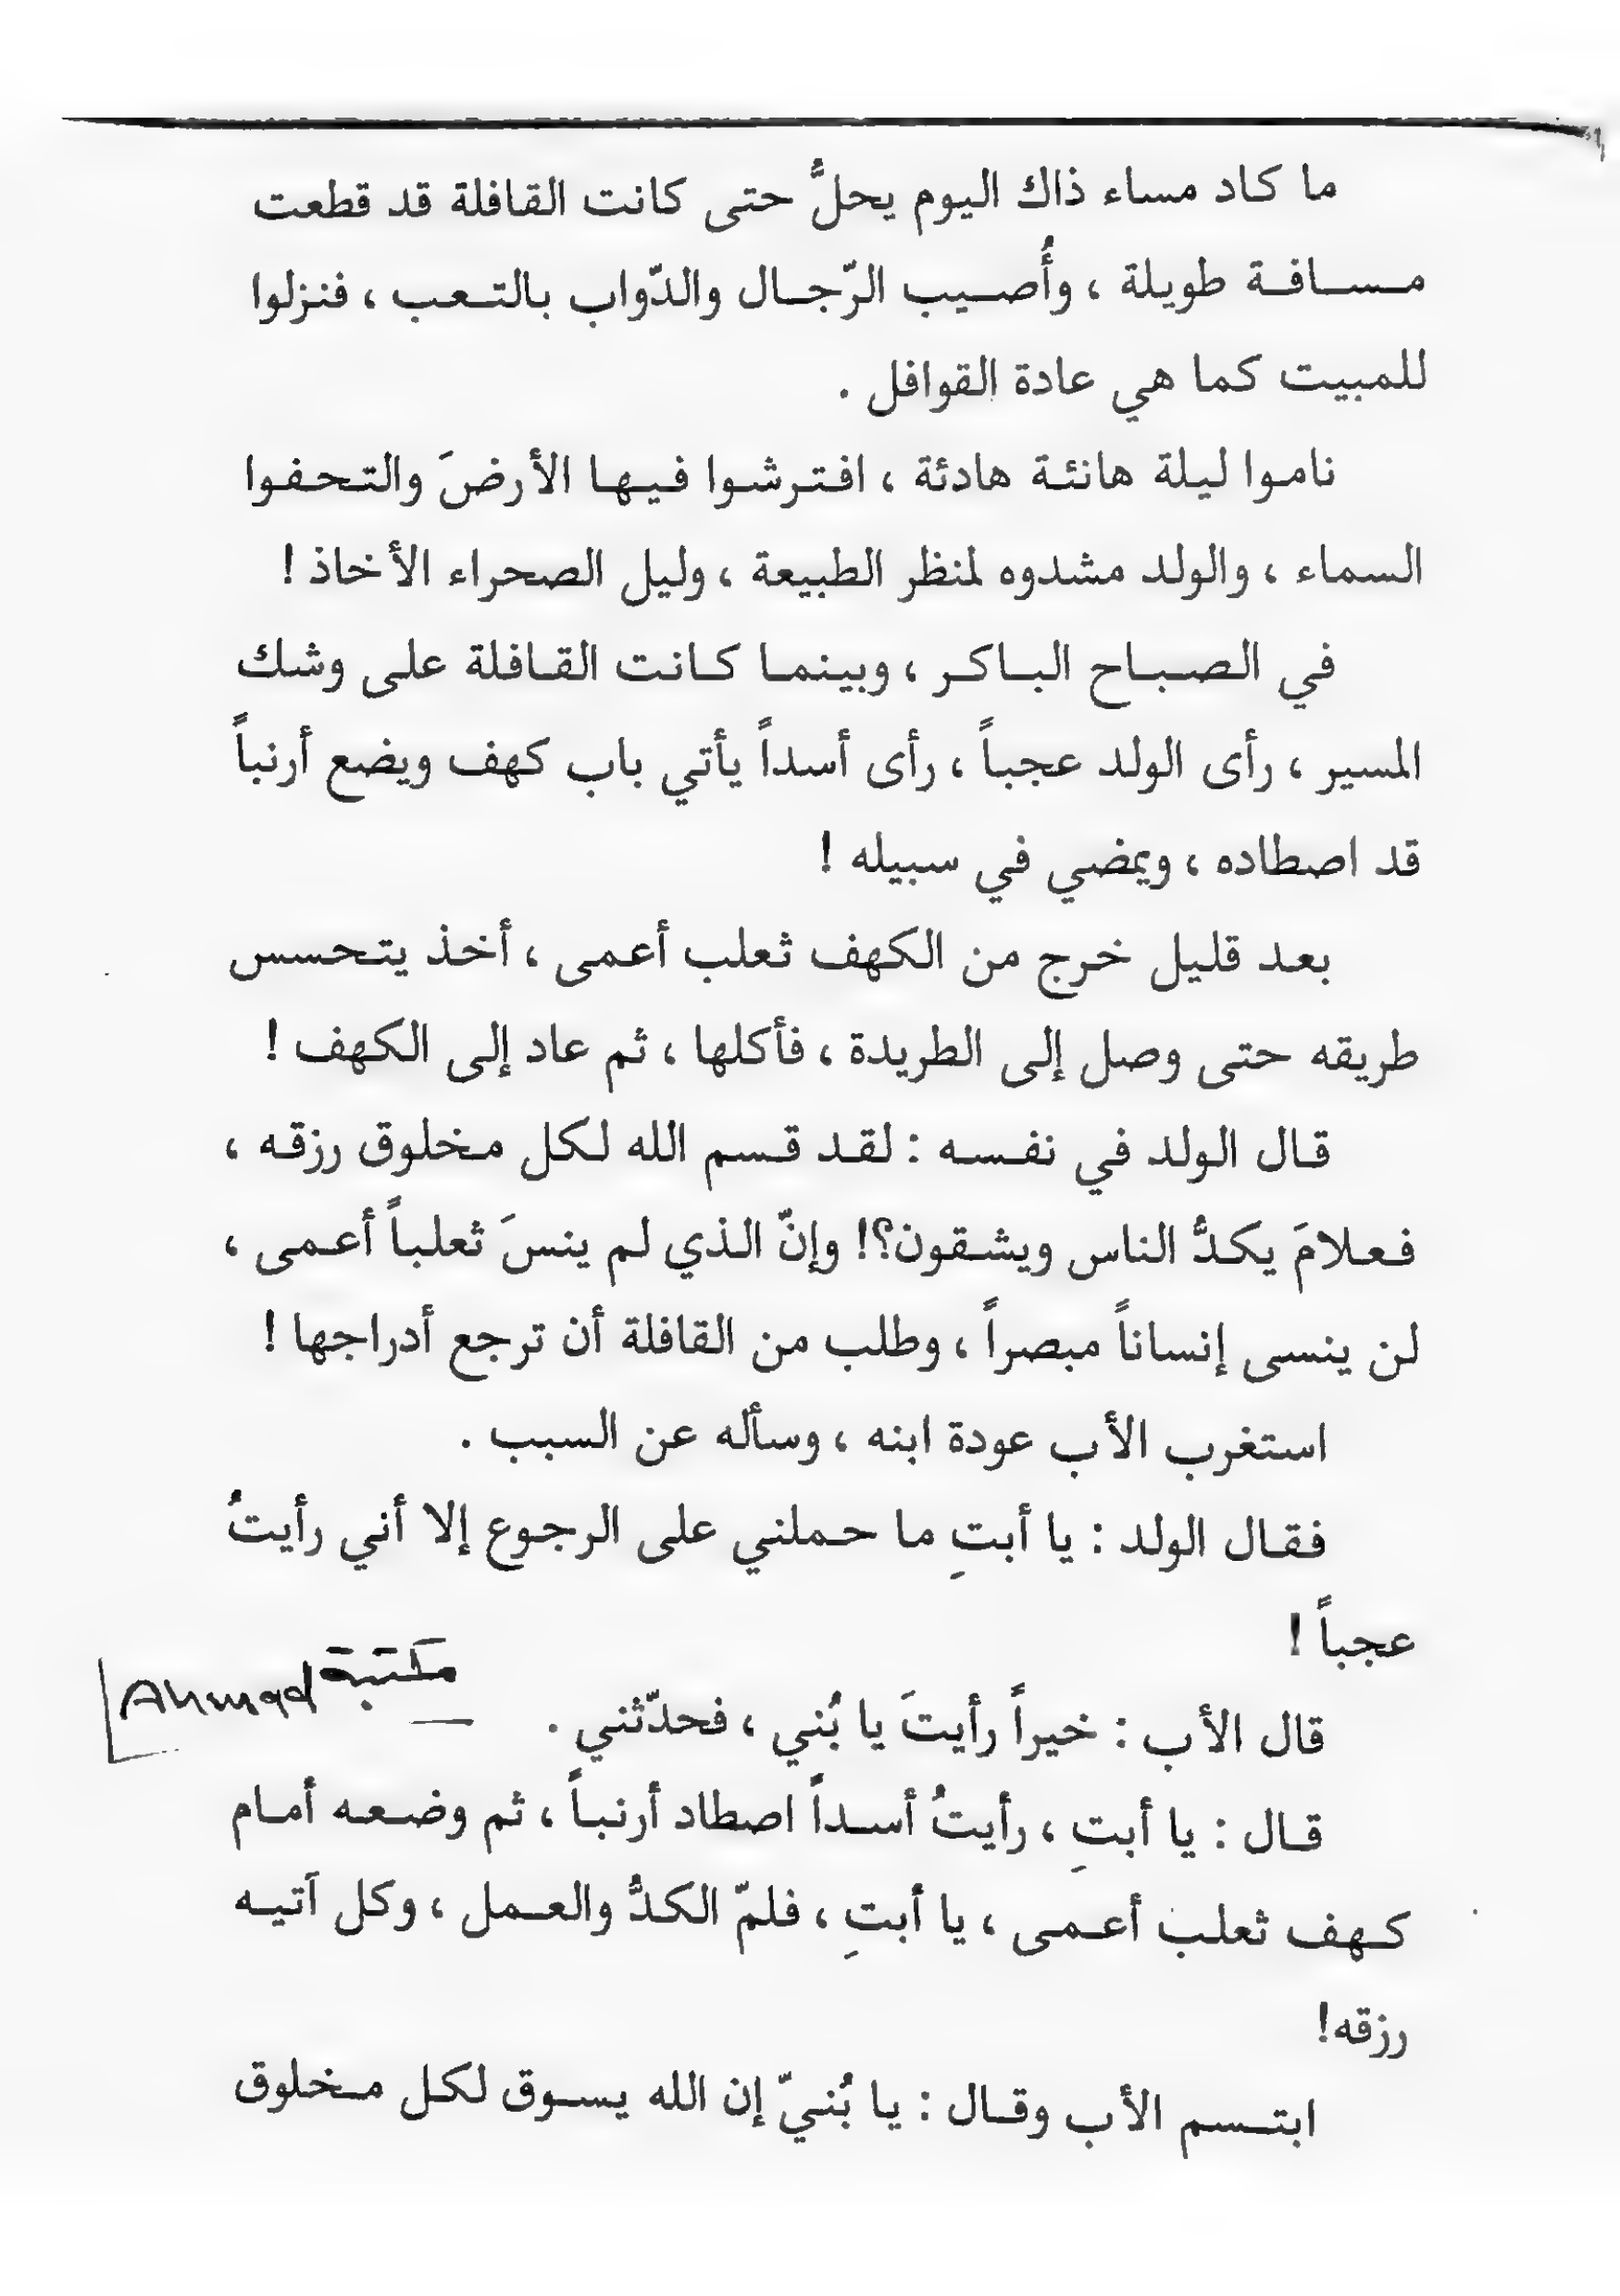 ما كاد مساء ذاك اليوم يحلُّ حتى كانت القافلة قد قطعت
مسافة طويلة ، وأُصيب الرّجال والدّواب بالتعب ، فنزلوا
للمبيت كما هي عادة القوافل .
ناموا ليلة هانئة هادئة ، افترشوا فيها الأرضَ والتحفوا
السماء ، والولد مشدوه لمنظر الطبيعة ، وليل الصحراء الأخاذ !
في الصباح الباكر ، وبينما كانت القافلة على وشك
المسير ، رأى الولد عجباً ، رأى أسداً يأتي باب كهف ويضع أرنباً
قد اصطاده ، ويمضي في سبيله !
بعد قليل خرج من الكهف ثعلب أعمى ، أخذ يتحسس
طريقه حتى وصل إلى الطريدة ، فأكلها ، ثم عاد إلى الكهف !
قال الولد في نفسه : لقد قسم الله لكل مخلوق رزقه ،
فعلامَ يكدُّ الناس ويشقون؟! وإنّ الذي لم ينسَ ثعلباً أعمى ،
لن ينسى إنساناً مبصراً ، وطلب من القافلة أن ترجع أدراجها !
استغرب الأب عودة ابنه ، وسأله عن السبب .
فقال الولد : يا أبتِ ما حملني على الرجوع إلا أني رأيتُ
عجباً !
مكتبة Ahmad
قال الأب : خيراً رأيتَ يا بُني ، فحدّثني .
قال : يا أبتِ ، رأيتُ أسداً اصطاد أرنباً ، ثم وضعه أمام
كهف ثعلب أعمى ، يا أبتِ ، فلمّ الكدُّ والعمل ، وكل آتيه
رزقه!
ابتسم الأب وقال : يا بُنيّ إن الله يسوق لكل مخلوق